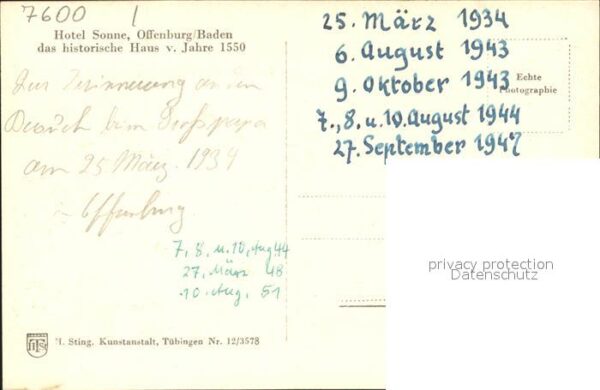 7600 /
Hotel Sonne, Offenburg/Baden
das historische Haus v. Jahre 1550
Zur Erinnerung an den
Besuch beim Grosspapa
am 25 März. 1934
in Offenburg.
7, 8. u. 10. Aug 44
27. März 48
10. Aug. 51
25. März 1934
6. August 1943
9. Oktober 1943
7., 8. u. 10. August 1944
27. September 1947
Echte
Photographie
privacy protection
Datenschutz
M. Sting. Kunstanstalt, Tübingen Nr. 12/3578